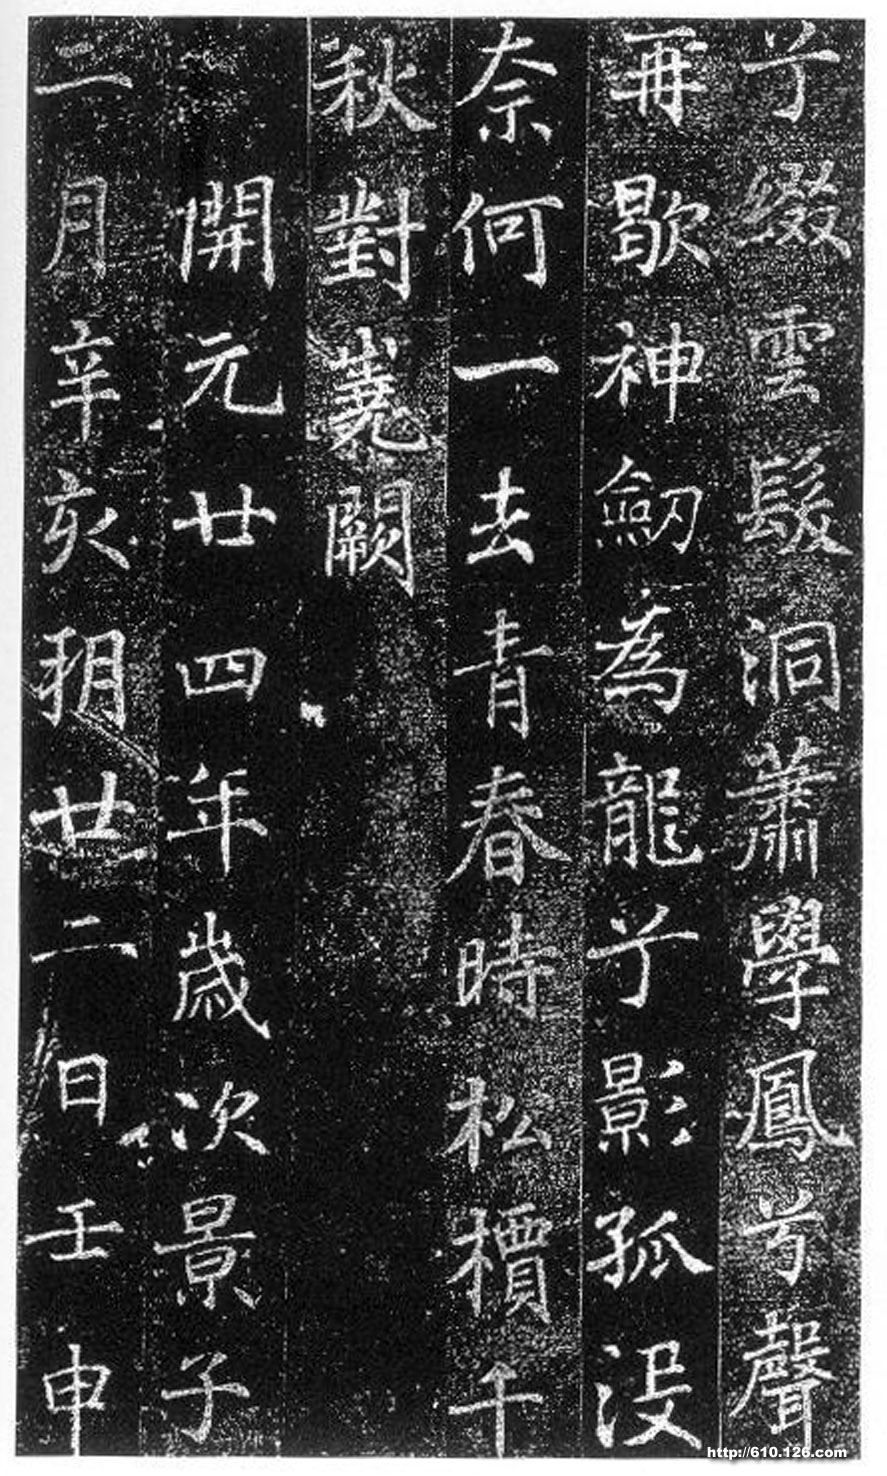 兮綴雲髮洞蕭學鳳兮聲
再歇神劒為龍兮影孤没
奈何一去青春時松檟千
秋對嶤闕
開元廿四年歲次景子
二月辛亥朔廿二日壬申
http://610.126.com